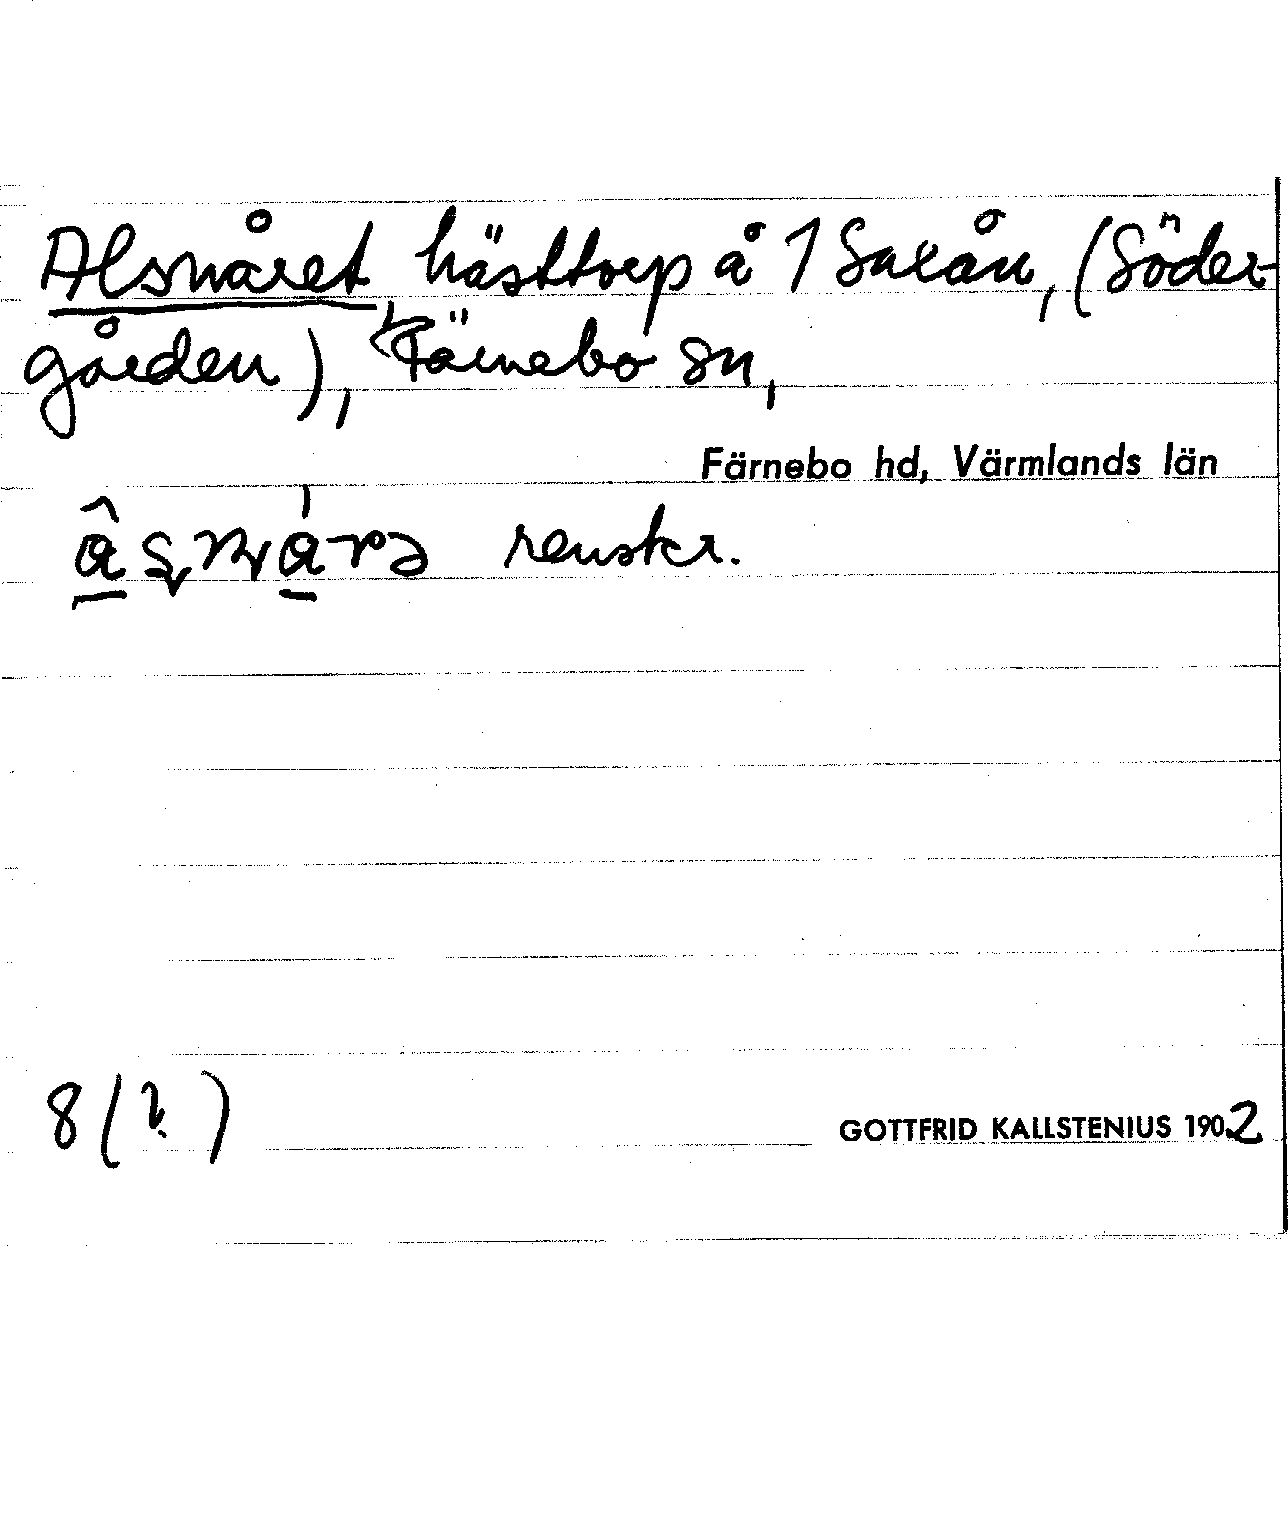 Alsnåret, hästtorp å 1 Saxån, (Söder-
gården), Färnebo sn,
Färnebo hd, Värmlands län
renskr.
8 (?)
GOTTFRID KALLSTENIUS 1902